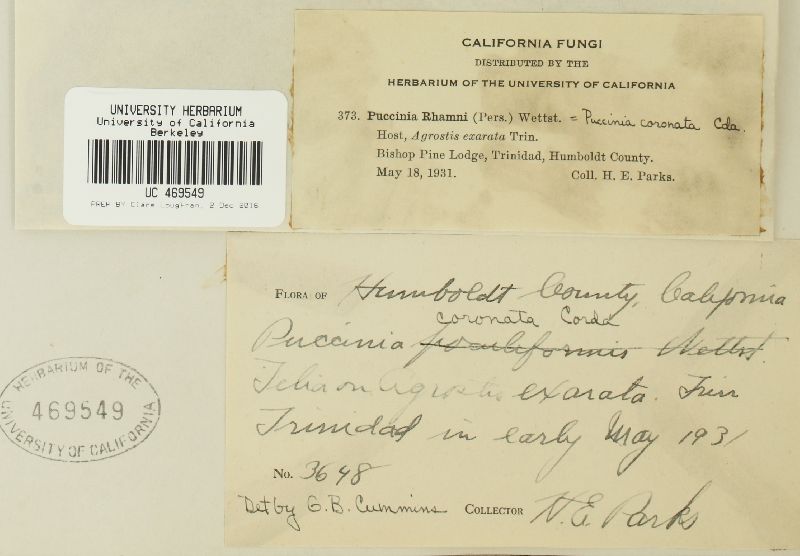 CALIFORNIA FUNGI
DISTRIBUTED BY THE
HERBARIUM OF THE UNIVERSITY OF CALIFORNIA
373. Puccinia Rhamni (Pers.) Wettst. = Puccinia coronata Cda.
Host, Agrostis exarata Trin.
Bishop Pine Lodge, Trinidad, Humboldt County.
May 18, 1931. Coll. H. E. Parks.
UNIVERSITY HERBARIUM
University of California
Berkeley
UC 469549
PREP BY Clare Loughran, 2 Dec 2016
FLORA OF Humboldt County, California
coronata Corda
Puccinia poculiformis Wettst.
Telia on Agrostis exarata. Trin
Trinidad in early May 1931
No. 3648
Det by G. B. Cummins COLLECTOR H. E. Parks
HERBARIUM OF THE
469549
UNIVERSITY OF CALIFORNIA